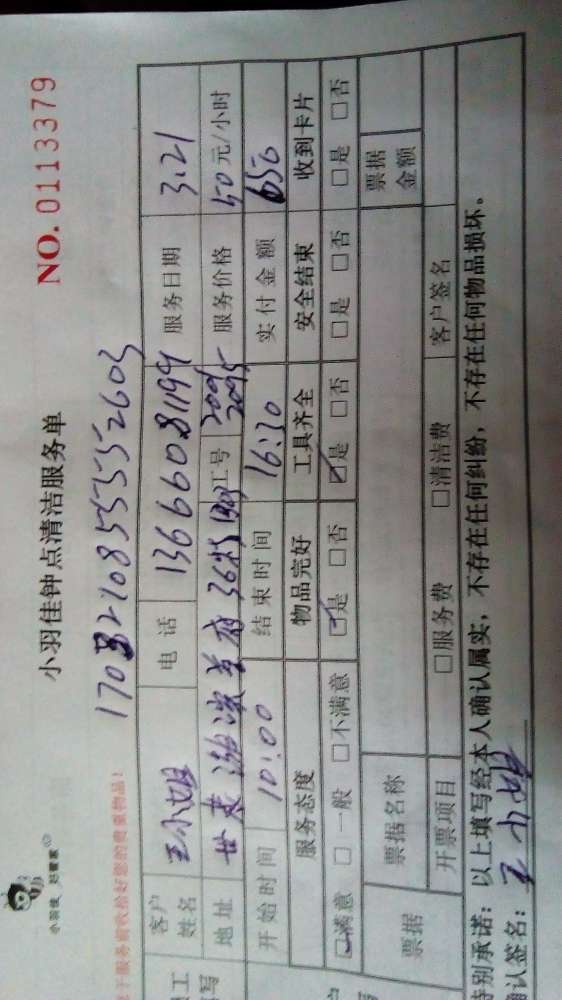 小羽佳 好管家
小羽佳钟点清洁服务单
NO. 0113379
请于服务前收拾好您的贵重物品！
客户姓名 王小姐 电话 13666081199 服务日期 3.21
地址 36栋 工号 2009 2095 服务价格 50元/小时
开始时间 10:00 结束时间 16:30 实付金额 650
服务态度 物品完好 工具齐全 安全结束 收到卡片
☑满意 □一般 □不满意 ☑是 □否 ☑是 □否 □是 □否 □是 □否
票据 票据名称 票据金额
开票项目 □服务费 □清洁费 客户签名
特别承诺：以上填写经本人确认属实，不存在任何纠纷，不存在任何物品损坏。
确认签名：王小姐